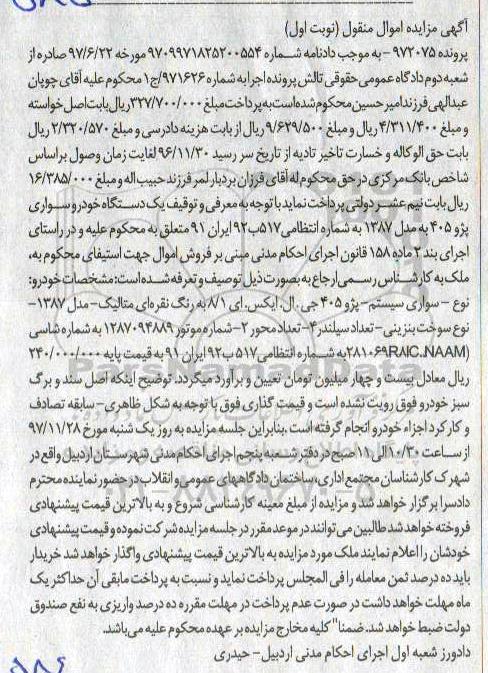 آگهی مزایده اموال منقول (نوبت اول)
پرونده ۹۷۲۰۷۵ - به موجب دادنامه شماره ۹۷۰۹۹۷۱۸۲۵۲۰۰۵۵۴ مورخه ۹۷/۶/۲۲ صادره از
شعبه دوم دادگاه عمومی حقوقی تالش پرونده اجرا به شماره ۹۷۱۶۲۶/ج۱ محکوم علیه آقای چوپان
عبدالهی فرزند امیرحسین محکوم شده است به پرداخت مبلغ ۳۲۷/۷۰۰/۰۰۰ ریال بابت اصل خواسته
و مبلغ ۴/۳۱۱/۴۰۰ ریال و مبلغ ۹/۶۲۹/۵۰۰ ریال از بابت هزینه دادرسی و مبلغ ۲/۳۲۰/۵۷۰ ریال
بابت حق الوکاله و خسارت تاخیر تادیه از تاریخ سر رسید ۹۶/۱۱/۳۰ لغایت زمان وصول براساس
شاخص بانک مرکزی در حق محکوم له آقای فرزان بردبار لمر فرزند حبیب اله و مبلغ ۱۶/۳۸۵/۰۰۰
ریال بابت نیم عشر دولتی پرداخت نماید با توجه به معرفی و توقیف یک دستگاه خودرو سواری
پژو ۴۰۵ به مدل ۱۳۸۷ به شماره انتظامی ۵۱۷ب۹۲ ایران ۹۱ متعلق به محکوم علیه و در راستای
اجرای بند ۲ ماده ۱۵۸ قانون اجرای احکام مدنی مبنی بر فروش اموال جهت استیفای محکوم به،
ملک به کارشناس رسمی ارجاع به صورت ذیل توصیف و تعرفه شده است: مشخصات خودرو:
نوع - سواری سیستم - پژو ۴۰۵ جی. ال. ایکس. ای ۸/۱ به رنگ نقره‌ای متالیک - مدل ۱۳۸۷-
نوع سوخت بنزینی - تعداد سیلندر ۴- تعداد محور ۲- شماره موتور ۱۲۴۸۷۰۹۴۸۸۹ به شماره شاسی
به شماره انتظامی ۵۱۷ب۹۲ ایران ۹۱ به قیمت پایه ۲۴۰/۰۰۰/۰۰۰
ریال معادل بیست و چهار میلیون تومان تعیین و برآورد میگردد. توضیح اینکه اصل سند و برگ
سبز خودرو فوق رویت نشده است و قیمت گذاری فوق با توجه به شکل ظاهری - سابقه تصادف
و کارکرد اجزاء خودرو انجام گرفته است. بنابراین جلسه مزایده به روز یک شنبه مورخ ۹۷/۱۱/۲۸
از ساعت ۱۰/۳۰ الی ۱۱ صبح در دفتر شعبه پنجم اجرای احکام مدنی شهرستان اردبیل واقع در
شهرک کارشناسان مجتمع اداری، ساختمان دادگاههای عمومی و انقلاب در حضور نماینده محترم
دادسرا برگزار خواهد شد و مزایده از مبلغ معینه کارشناسی شروع و به بالاترین قیمت پیشنهادی
فروخته خواهد شد طالبین می‌توانند در موعد مقرر در جلسه مزایده شرکت نموده و قیمت پیشنهادی
خودشان را اعلام نمایند ملک مورد مزایده به بالاترین قیمت پیشنهادی واگذار خواهد شد خریدار
باید ده درصد ثمن معامله را فی المجلس پرداخت نماید و نسبت به پرداخت مابقی آن حداکثر یک
ماه مهلت خواهد داشت در صورت عدم پرداخت در مهلت مقرره ده درصد واریزی به نفع صندوق
دولت ضبط خواهد شد. ضمنا" کلیه مخارج مزایده بر عهده محکوم علیه می‌باشد.
دادورز شعبه اول اجرای احکام مدنی اردبیل - حیدری